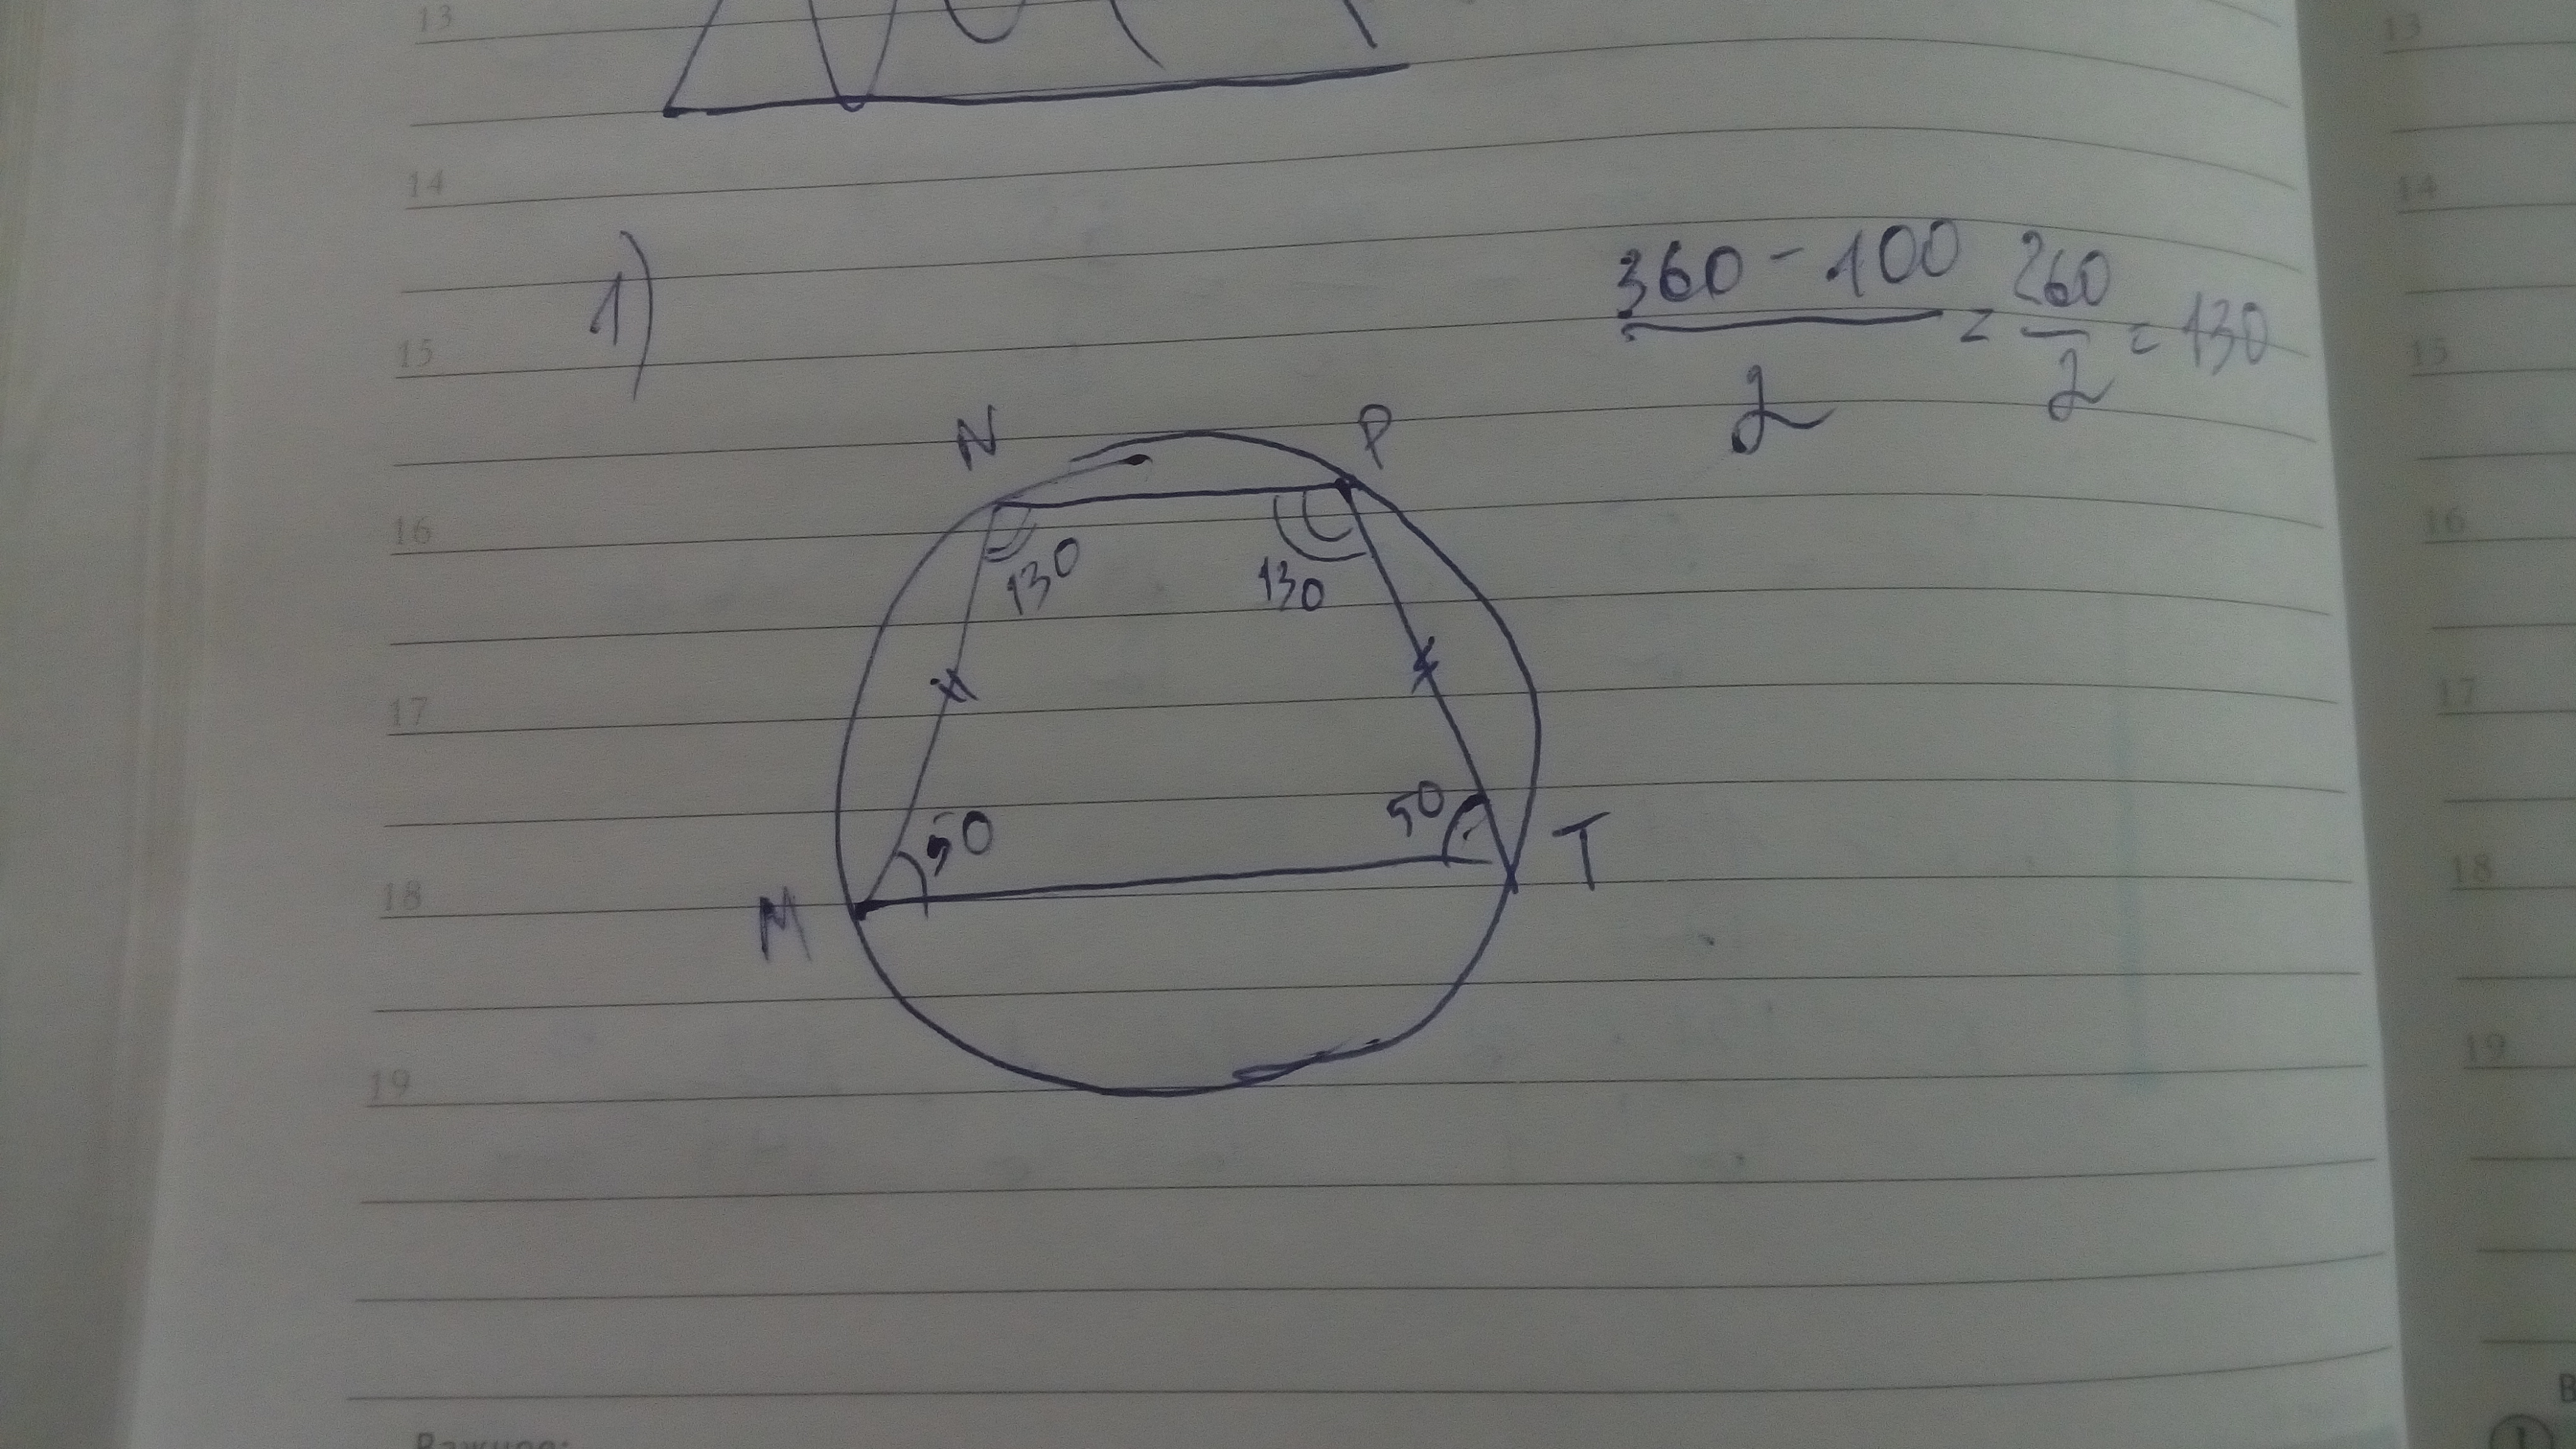 13
13
14
14
1)
360 - 100 = 260 = 130
2 2
15
15
N P
16
16
130 130
17
17
50 50 T
18
18
M
19
19
Важное:
В
1